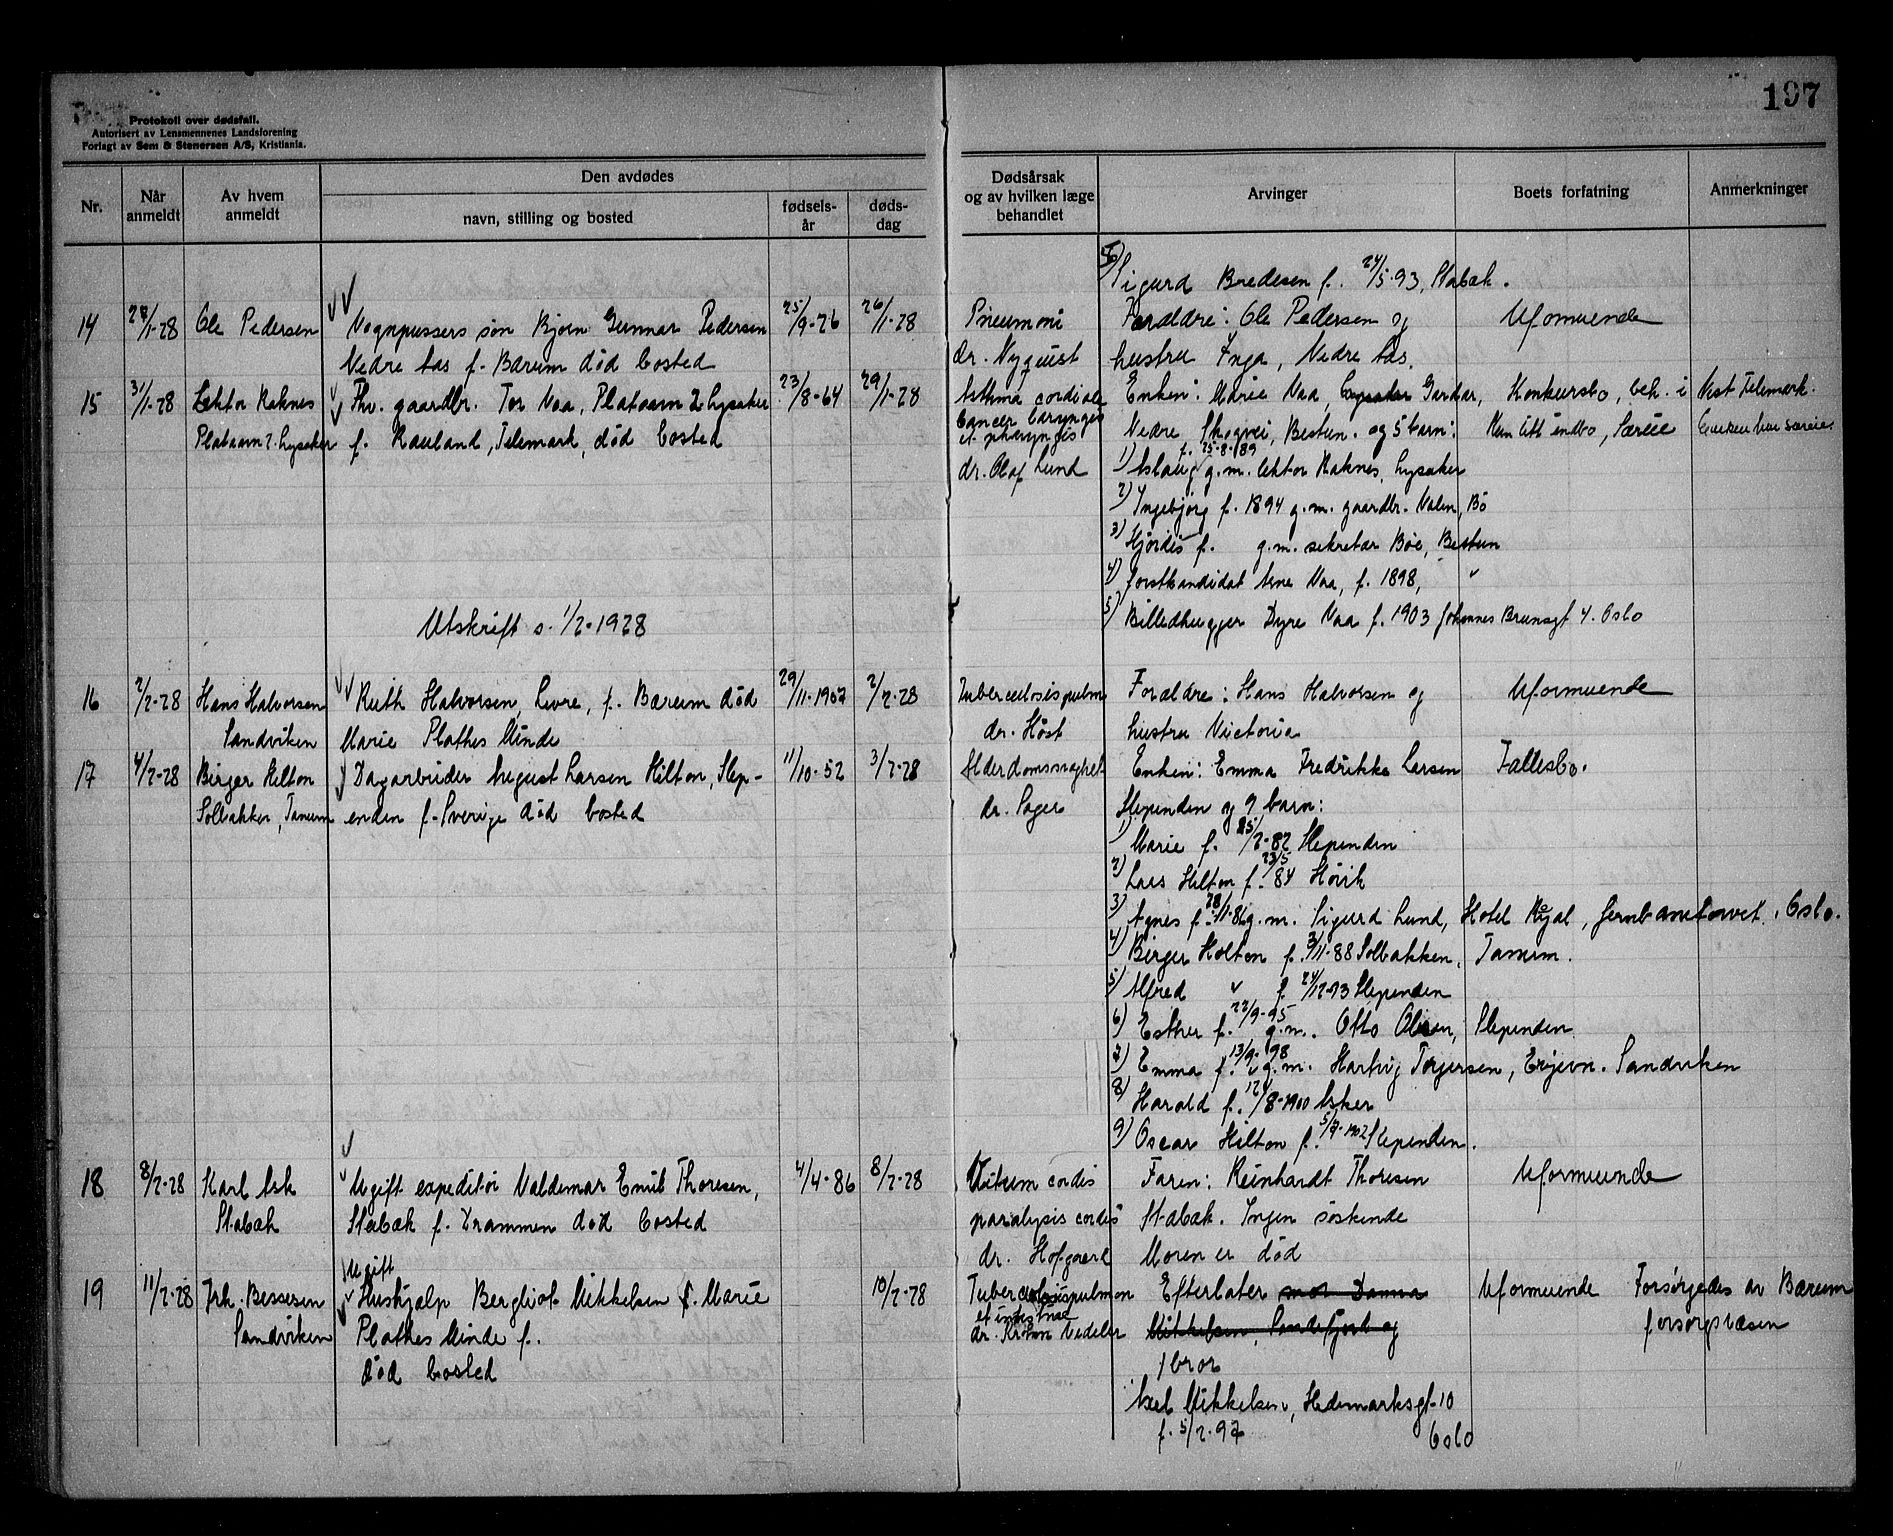 197
Protokoll over dødsfall.
Autorisert av Lensmennenes Landsforening
Forlagt av Sem & Stenersen A/S, Kristiania.
Nr.
Når anmeldt
Av hvem anmeldt
Den avdødes
navn, stilling og bosted
fødsels-år
døds-dag
Dødsårsak og av hvilken læge behandlet
Arvinger
Boets forfatning
Anmerkninger
Sigurd Bredesen f. 24/5-93, Stabæk.
14 27/1-28 Ole Pedersen Vognpussers søn Bjørn Gunnar Pedersen 25/9-26 26/1-28 Pneumoni Forældre: Ole Pedersen og Uformuende
Nedre Aas f. Bærum død bosted dr. Nyquist hustru Inga, Nedre Aas.
15 31/1-28 Lektor Raknes Fhv. gaardbr. Tor Vaa, Plataavn 2 Lysaker 23/8-64 29/1-28 Asthma cordiale Enken: Marie Vaa, Lysaker Gardar, Konkursbo, beh. i Vest Telemark.
Plataavn 2. Lysaker f. Rauland, Telemark, død bosted Cancer laryngis et pharyngis Nedre Skogvei, Bestun. og 5 barn: Kun litt indbo, Særeie Enken har særeie
dr. Olaf Lund 1) Aslaug f. 25-8-89 g.m. lektor Raknes, Lysaker
2) Ingebjørg f. 1894 g.m. gaardbr. Valen, Bø
3) Hjørdis f. g.m. sekretær Bøe, Bestun
4) forstkandidat Arne Vaa, f. 1898, "
5) Billedhugger Dyre Vaa f. 1903 Johannes Brunsgt 4. Oslo
Utskrift s. 1/2-1928
16 2/2-28 Hans Halvorsen Ruth Halvorsen, Levre, f. Bærum død 29/11-1907 2/2-28 Tuberculosis pulm Forældre: Hans Halvorsen og Uformuende
Sandviken Marie Plathes Minde dr. Høst hustru Victoria
17 4/2-28 Birger Hilton Dagarbeider August Larsen Hilton, Slep- 11/10-52 3/2-28 Alderdomssvaghet Enken: Emma Fredrikke Larsen Fallesbo.
Solbakken, Tanum enden f. Sverige død bosted dr. Sager Slependen og 9 barn:
1) Marie f. 25/2-82 Slependen
2) Lars Hilton f. 23/5 84 Høvik
3) Agnes f. 28/11-86 g.m. Sigurd Lund, Hotel Royal, Jernbanetorvet, Oslo.
4) Birger Hilton f. 3/11-88 Solbakken, Tanum.
5) Alfred " f. 24/12-93 Slependen
6) Esther f. 22/9-95 g.m. Otto Olsen, Slependen
7) Emma f. 13/9-98 g.m. Hartvig Torjersen, Sandviken
8) Harald f. 12/8-1900 Asker
9) Oscar Hilton f. 5/7-1902 Slependen.
18 8/2-28 Karl Ask Ugift expeditør Valdemar Emil Thoresen, 4/4-86 8/2-28 Vitium cordis Faren: Reinhardt Thoresen Uformuende
Stabæk Stabæk f. Drammen død bosted paralysis cordis Stabæk. Ingen søskende
dr. Hofgaard Moren er død
Ugift
19 11/2-28 Frk. Bessesen Hushjælp Bergliot Mikkelsen f. Marie 10/2-28 Tuberculosis pulmon Efterlater mor Danna Uformuende Forsørgedes av Bærum
Sandviken Plathes Minde f. et intestinae dr. Kroken Vedeler Mikkelsen, Sandefjord og forsorgsvæsen
død bosted 1 bror
Axel Mikkelsen, Hedemarksgt-10
f. 5/2-97 Oslo